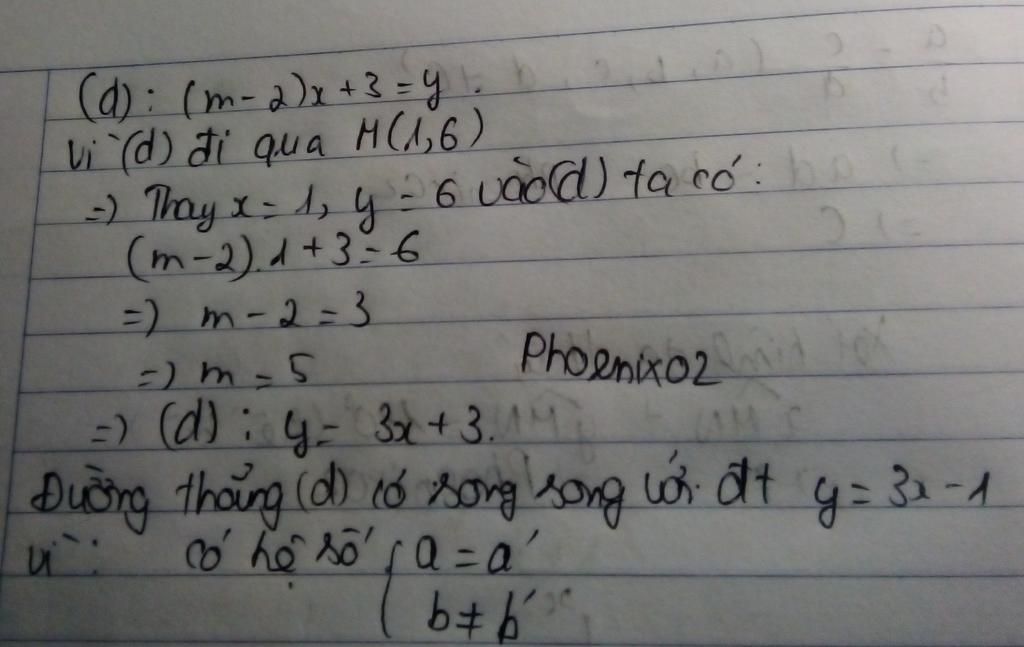 (d) : (m-2)x+3=y.
Vì (d) đi qua M(1,6)
=) Thay x=1, y=6 vào (d) ta có:
(m-2).1+3=6
=) m-2=3
=) m=5
Phoenix02
=) (d) : y= 3x+3.
Đường thẳng (d) có song song với đt y=3x-1
vì: có hệ số { a=a'
b≠b'